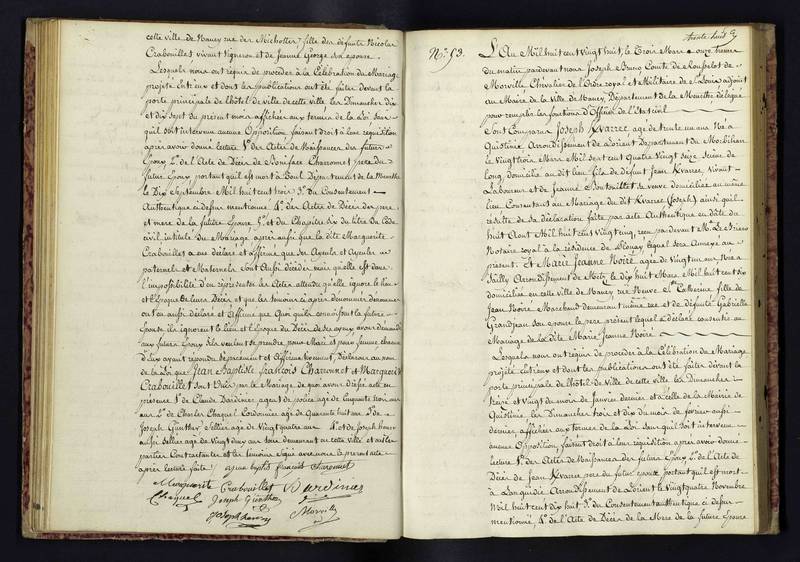 cette ville de Nancy rue des Michottes fille des défunts Nicolas
Crabouillet vivant Vigneron et de Jeanne George son épouse.
Lesquels nous ont requis de procéder à la Célébration du Mariage
projeté Entr'eux et dont les publications ont été faites devant la
porte principale de l'hôtel de ville de cette ville les Dimanches dix
et dix sept du présent mois affichées aux termes de la Loi sans
qu'il soit intervenu aucune Opposition, faisant droit à leur requisition
après avoir donné lecture 1º. des Actes de Naissances des futurs
Epoux 2º. de l'Acte de Décès de Boniface Charronet père du
futur Epoux portant qu'il est mort à Toul Département de la Meurthe
le Dix Septembre Mil huit cent trois 3º. du Consentement
Authentique ci-dessus mentionné 4º. des Actes de Décès des père
et mère de la future Epouse 5º. et du Chapitre six du titre du Code
civil intitulé du Mariage après aussi que la dite Marguerite
Crabouillet a eu déclaré et affirmé que ses Ayeuls et Ayeules
paternels et Maternels sont Aussi décédés mais qu'elle est dans
l'impossibilité d'en représenter les Actes attendu qu'elle ignore le lieu
et l'Epoque de leurs Décès et que les témoins ci après dénommés
ont eu aussi déclaré et Affirmé que Quoi qu'ils connoissent la future
Epouse ils ignorent le lieu et Epoque du Décès de ses ayeux avoir demandé
aux futurs Epoux s'ils veulent se prendre pour Mari et pour femme chacun
d'Eux ayant répondu séparément et Affirmativement, Déclarons au nom
de la Loi que Jean Baptiste François Charronet et Marguerite
Crabouillet sont Unis par le Mariage de quoi avons dressé acte en
présence 1º. de Claude Dardinier agent de police agé de Cinquante trois ans
2º. de Charles Chaquel Cordonnier agé de Quarante huit ans 3º. de
Joseph Günther Sellier agé de Vingt quatre ans 4º. et de Joseph
aussi Sellier agé de Vingt deux ans tous demeurant en cette ville et ont les
parties Contractantes et les témoins signé avec nous le présent acte
après lecture faite. / jean baptis françois Charonnet
Marguerite Crabouillet Dardinier
Chaquel Joseph Günther
Joseph Morville
trente huit
Nº. 53. L'An Mil huit cent vingt huit, le Trois Mars à onze heures
du matin pardevant nous Joseph Bruno Comte de Rousselot de
Morville, Chevalier de l'Ordre royal et Militaire de St Louis, adjoint
au Maire de la ville de Nancy, Département de la Meurthe délégué
pour remplir les fonctions d'Officier de l'Etat Civil
Sont Comparus Joseph Kvarrec agé de trente un ans Né à
Quistinic Arrondissement de Lorient Département du Morbihan
le Vingt trois Mars Mil sept cent Quatre Vingt Seize Scieur de
long domicilié au dit lieu fils de défunt Jean Kvarrec vivant
Laboureur et de Jeanne Boutouillet sa veuve domiciliée au même
lieu Consentant au Mariage du dit Kvarrec (Joseph) ainsi qu'il
résulte de sa déclaration faite par acte Authentique en date du
huit Aout Mil huit cent vingt cinq, reçu pardevant Me. Le
Notaire royal à la résidence de Plouay lequel sera Annexé au
présent. Et Marie Jeanne Noiré agée de Vingt un ans Née à
Failly Arrondissement de Metz le dix huit Mars Mil huit cent dix
domiciliée en cette ville de Nancy rue Neuve Ste. Catherine fille de
Jean Noiré Marchand demeurant même rue et de défunte Gabrielle
Grandjean son épouse le père présent lequel a déclaré consentir au
Mariage de la dite Marie Jeanne Noiré
Lesquels nous ont requis de procéder à la Célébration du Mariage
projeté entr'eux et dont les publications ont été faites devant la
porte principale de l'hôtel de ville de cette ville les Dimanches
treize et vingt du mois de janvier dernier et à celle de la Mairie de
Quistinic les Dimanches trois et dix du mois de février aussi
dernier, affichées aux termes de la Loi sans qu'il soit intervenu
aucune Opposition, faisant droit à leur réquisition après avoir donné
lecture 1º. des Actes de Naissances des futurs Epoux 2º. de l'Acte de
Décès de Jean Kvarrec père du futur époux portant qu'il est mort
à Languidic Arrondissement de Lorient le Vingt quatre Novembre
Mil huit cent dix huit 3º. du Consentement authentique ci dessus
mentionné, 4º. de l'Acte de Décès de la Mère de la future Epouse